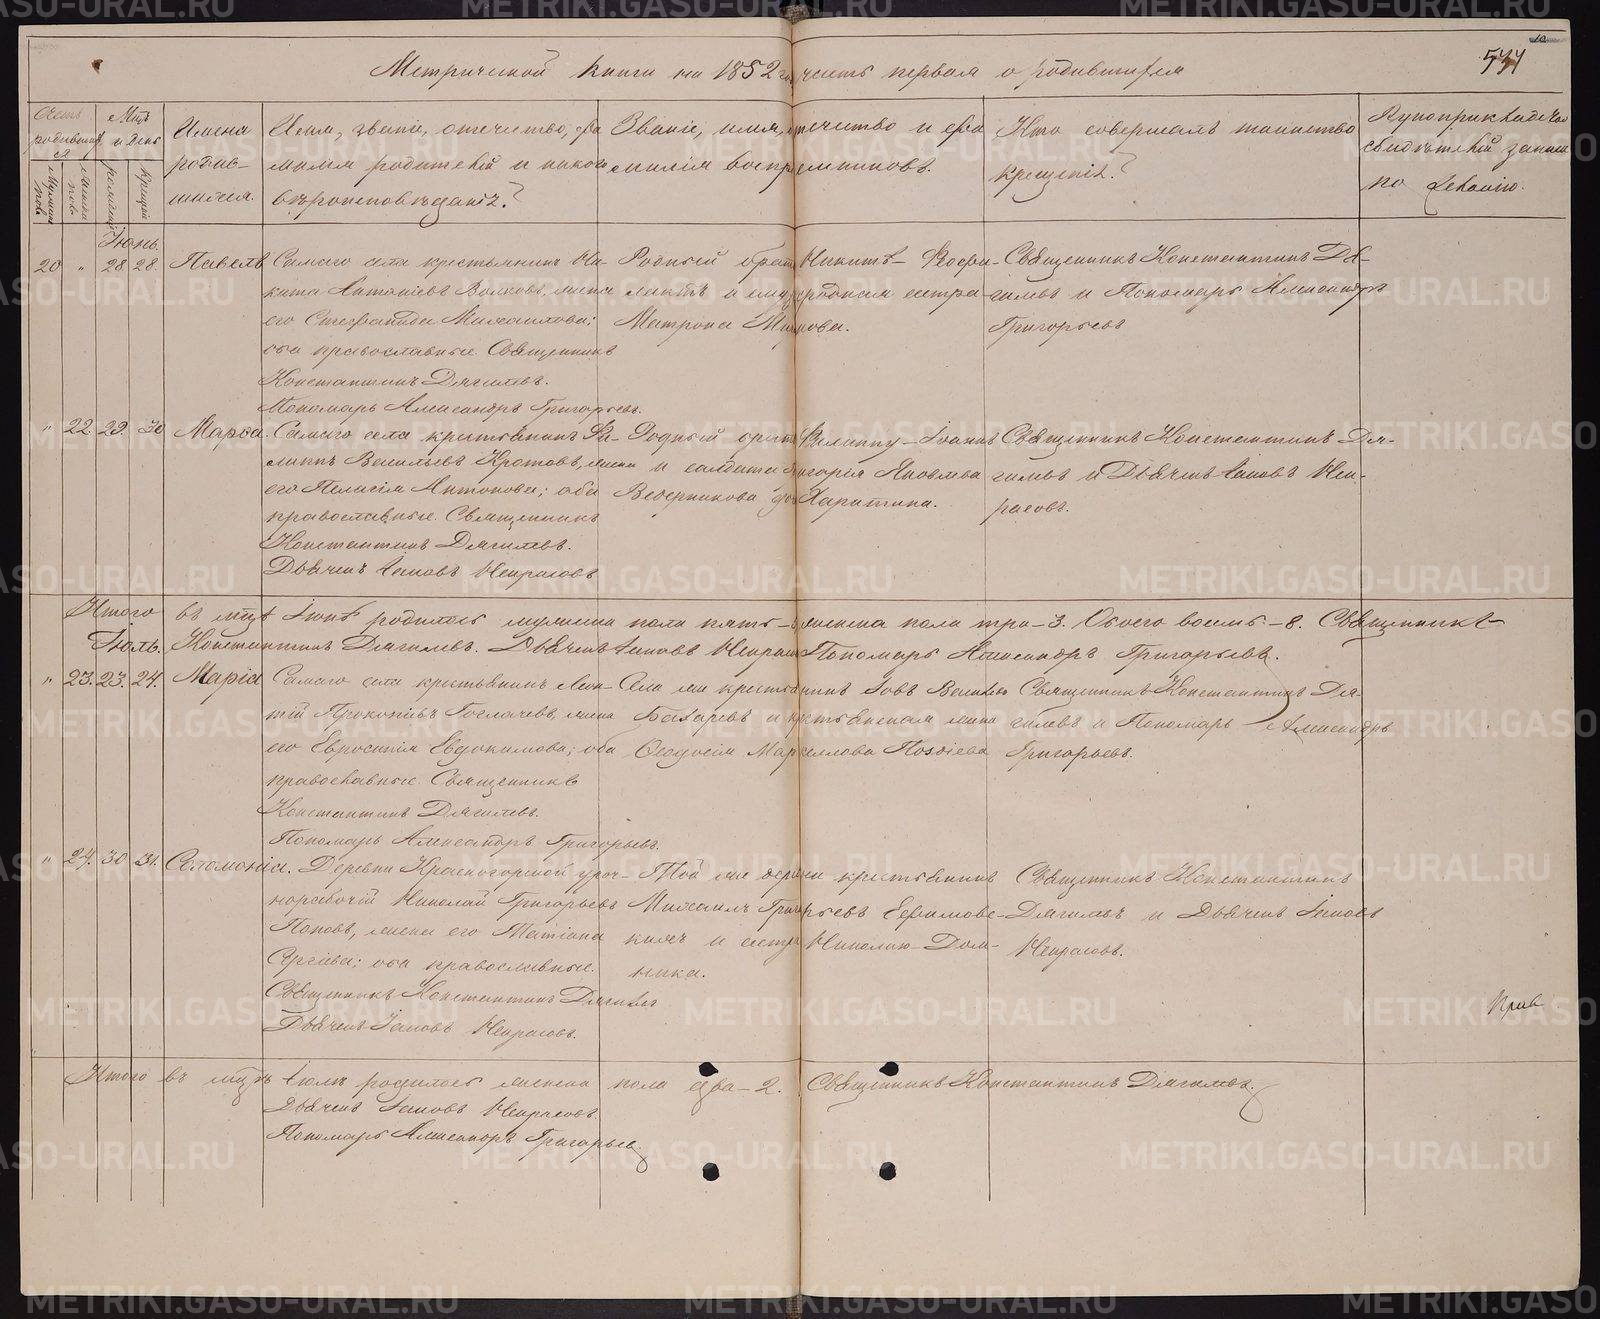 Метрической книги на 1852 годъ часть первая о родившихся
Счетъ родившихся
Мцъ и день
Имена родившихся.
Имя, званіе, отечество, фамилія родителей и какого вѣроисповѣданія?
Званіе, имя, отечество и фамилія воспріемниковъ.
Кто совершалъ таинство крещенія?
Рукоприкладство свидѣтелей записи по желанію.
Июнь.
20 " 28. 28. Павелъ
Самаго села крестьянинъ Ни-
кита Антоніевъ Волковъ, жена
его Стефанида Михаилова;
оба православные. Священникъ
Константинъ Дягилевъ.
Пономарь Александръ Григорьевъ.
Родный братъ Никитѣ
и ему родная сестра
Матрона
Священникъ Константинъ Дя-
гилевъ и Пономарь Александръ
Григорьевъ
" 22. 29. 30 Марѳа.
Самаго села крестьянинъ Фи-
липпъ Васильевъ Кротовъ, жена
его Пелагія Антонова; оба
православные. Священникъ
Константинъ Дягилевъ.
Дьячекъ Іаковъ Некрасовъ
Родный братъ Филиппу Іоаннъ
и солдата Григорія Яковлева
Ведерникова дочь Харитина.
Священникъ Константинъ Дя-
гилевъ и Дьячекъ Іаковъ Нек-
расовъ.
Итого въ мцѣ Іюнѣ родилось мужеска пола пять женска пола три - 3. Обоего восемь - 8. Священникъ
Константинъ Дягилевъ. Дьячекъ Іаковъ Некрасовъ Пономарь Александръ Григорьевъ.
Іюль.
" 23. 23. 24. Марія
Самаго села крестьянинъ Леон-
тій Прокопіевъ, жена
его Евросинія Евдокимова; оба
православные. Священникъ
Константинъ Дягилевъ.
Пономарь Александръ Григорьевъ.
Села же крестьянинъ Іовъ
и крестьянская жена
Ѳеодосія Маркеллова
Священникъ Константинъ Дя-
гилевъ и Пономарь Александръ
Григорьевъ.
" 24. 30 31. Соломонія.
Деревни Красногорской уроч-
норабочій Николай Григорьевъ
Поповъ, жена его Матіана
Сергіева; оба православные.
Священникъ Константинъ Дягилевъ
Дьячекъ Іаковъ Некрасовъ.
Той же деревни крестьянинъ
Михаилъ Григорьевъ Ефимовс-
кихъ и сестра Николаю Дом-
ника.
Священникъ Константинъ
Дягилевъ и Дьячекъ Іаковъ
Некрасовъ.
Итого въ мцѣ Іюлѣ родилось женска пола два - 2. Священникъ Константинъ Дягилевъ.
Дьячекъ Іаковъ Некрасовъ.
Пономарь Александръ Григорьев.
METRIKI.GASO-URAL.RU